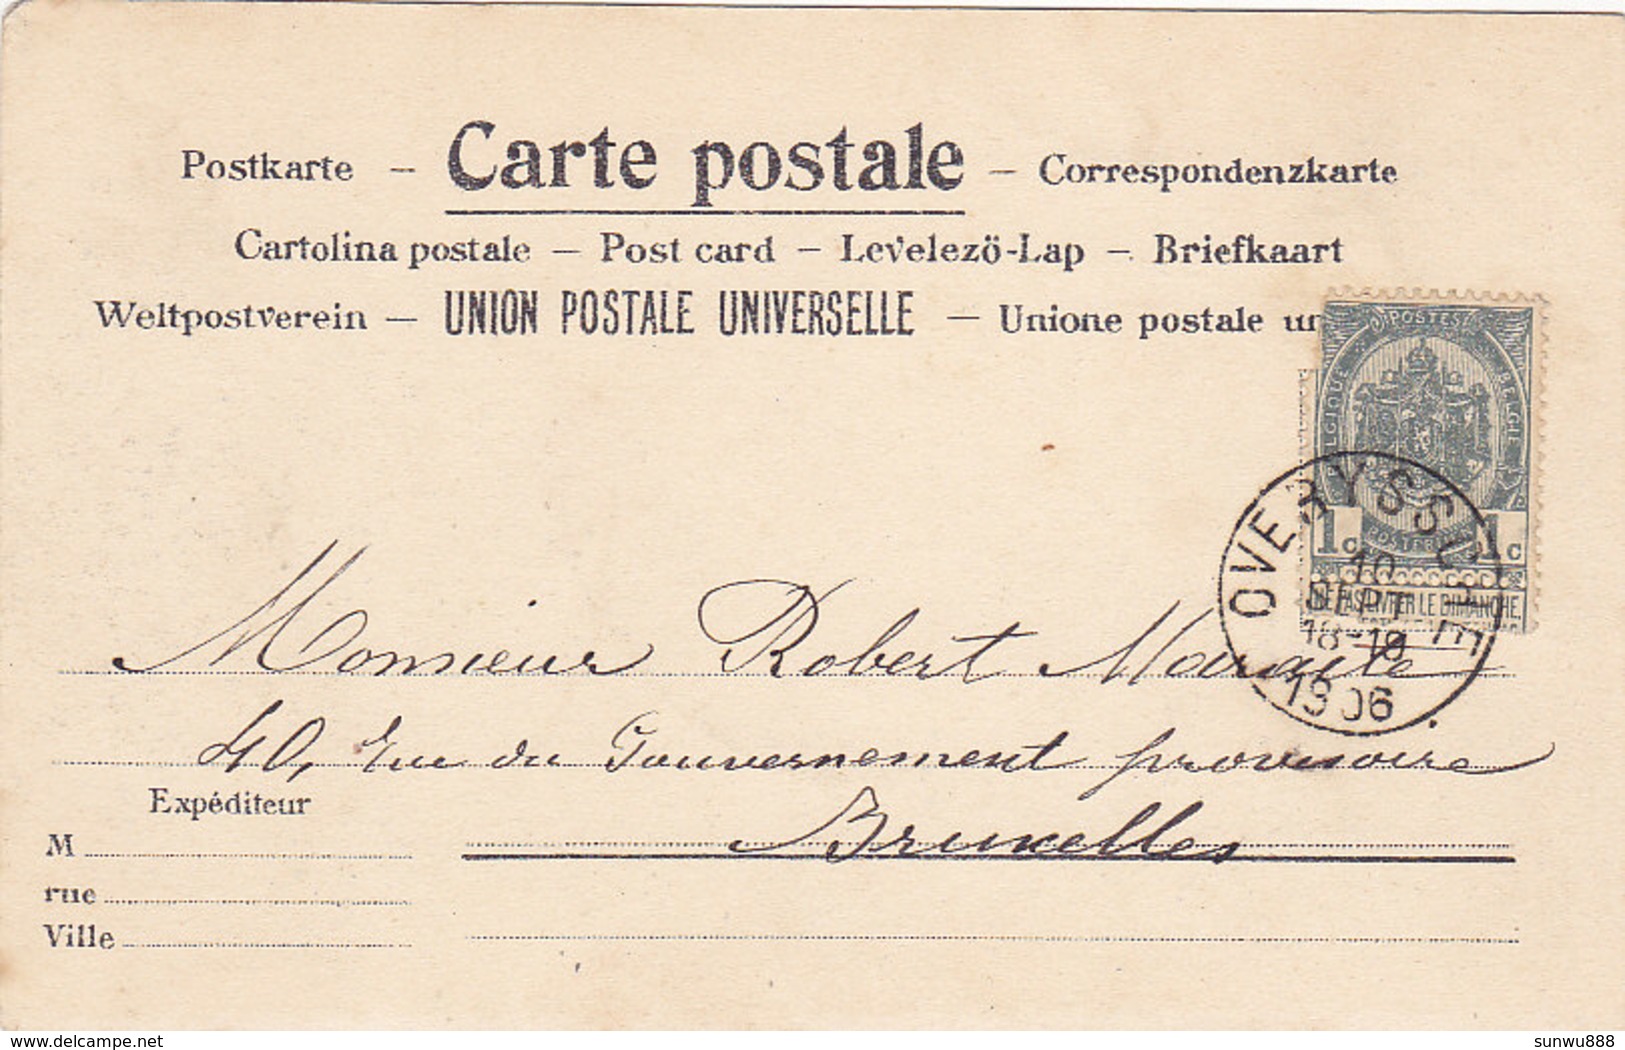 Postkarte – Carte postale – Correspondenzkarte
Cartolina postale – Post card – Levelezö-Lap – Briefkaart
Weltpostverein – UNION POSTALE UNIVERSELLE – Unione postale un
POSTES
BELGIQUE BELGIE
POSTERIJEN
1c 1c
NE PAS LIVRER LE DIMANCHE
OVERYSSCHE
10
SEPT
18-19
1906
Monsieur Robert
40, Rue du Gouvernement provisoire
Bruxelles
Expéditeur
M
rue
Ville
delcampe.net
sunwu888